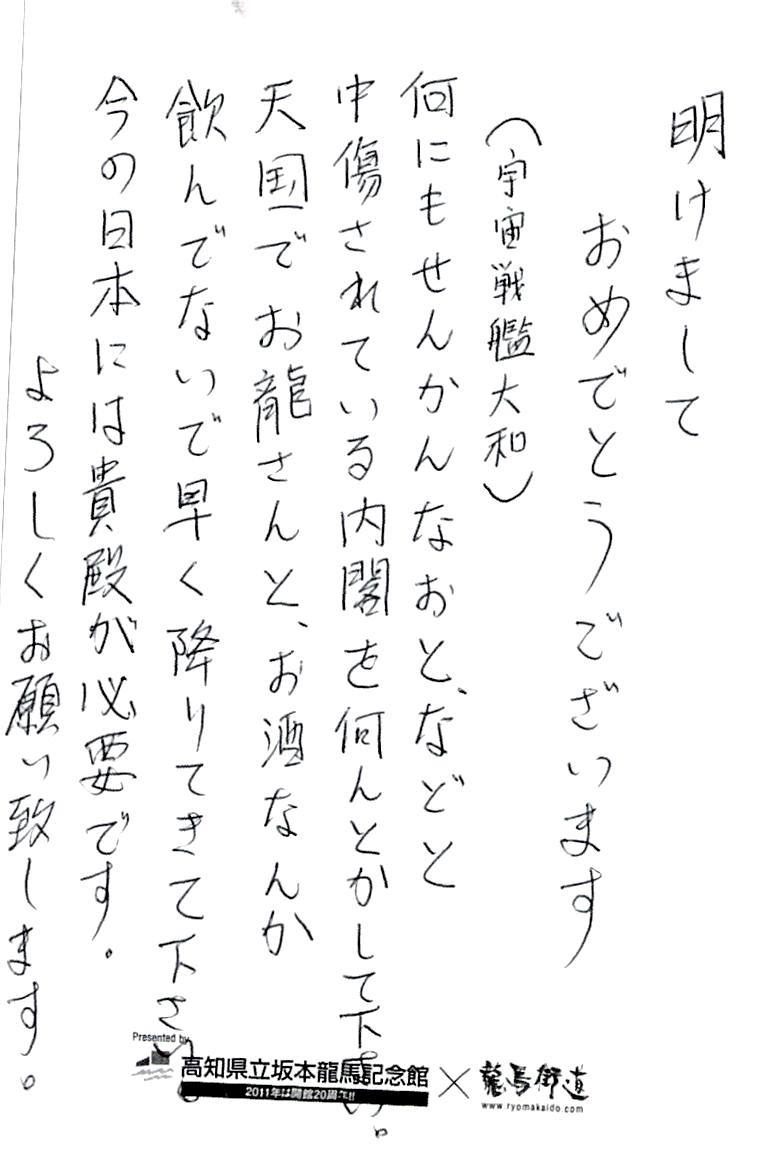 明けまして
おめでとうございます
(宇宙戦艦大和)
何にもせんかんなおと、などと
中傷されている内閣を何んとかして下さい。
天国でお龍さんと、お酒なんか
飲んでないで早く降りてきて下さい。
今の日本には貴殿が必要です。
よろしくお願い致します。
Presented by
高知県立坂本龍馬記念館×龍馬街道
2011年は開館20周年!!
www.ryomakaido.com